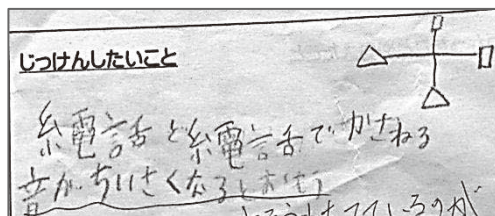 じっけんしたいこと
糸電話と糸電話でかさねる
音がちいさくなるとおもう
ているのが